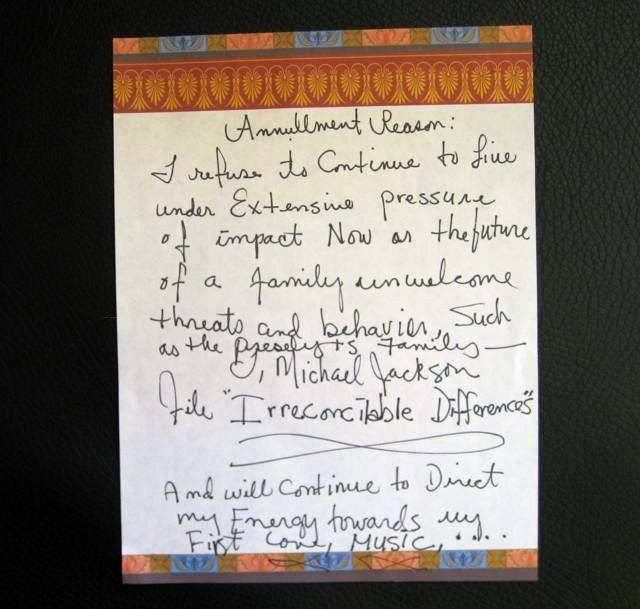 Annullment Reason:
I refuse to Continue to live
under Extensive pressure
of impact Now or the future
of a family unwelcome
threats and behavior, Such
as the Preselyts Family —
I, Michael Jackson
File "Irreconcibble Differences"
And will Continue to Direct
my Energy towards my
First Love, MUSIC, ....